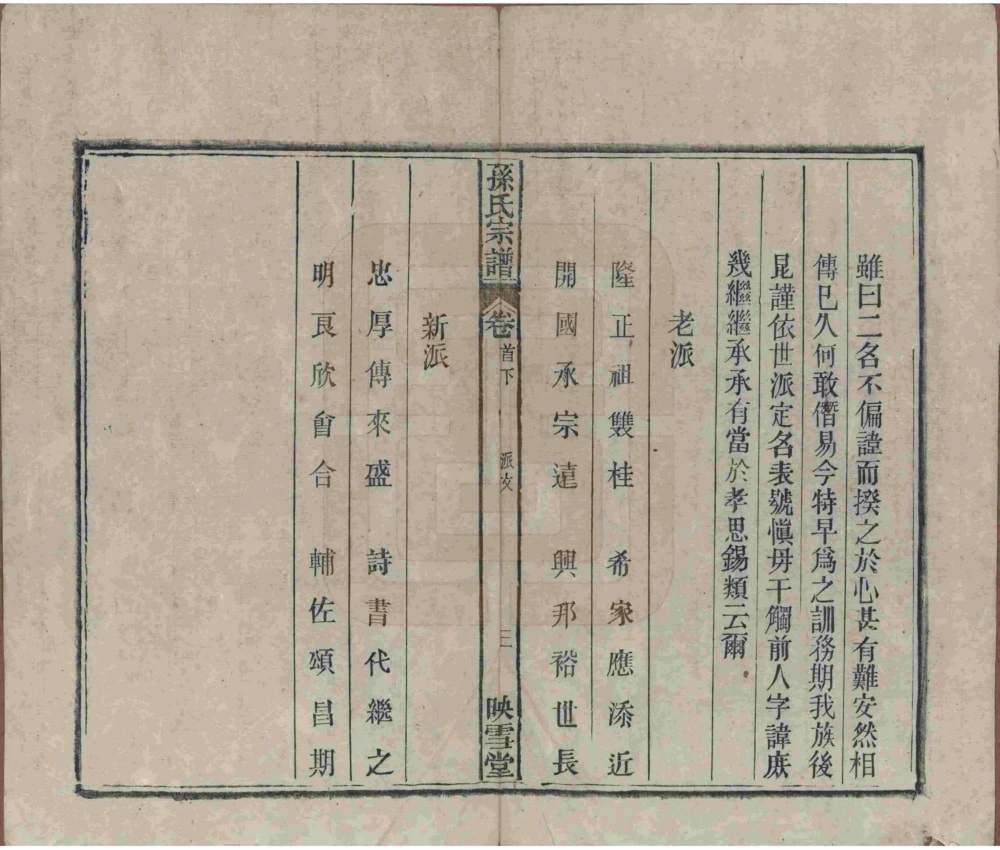 雖曰二名不偏諱而揆之於心甚有難安然相
傳已久何敢僭易今特早為之訓務期我族後
昆謹依世派定名表號慎毋干觸前人字諱庶
幾繼繼承承有當於孝思錫類云爾
老派
隆正祖雙桂 希家應添近
開國承宗遠 興邦裕世長
孫氏宗譜 卷首下 派文 三 映雪堂
新派
忠厚傳來盛 詩書代繼之
明良欣會合 輔佐頌昌期